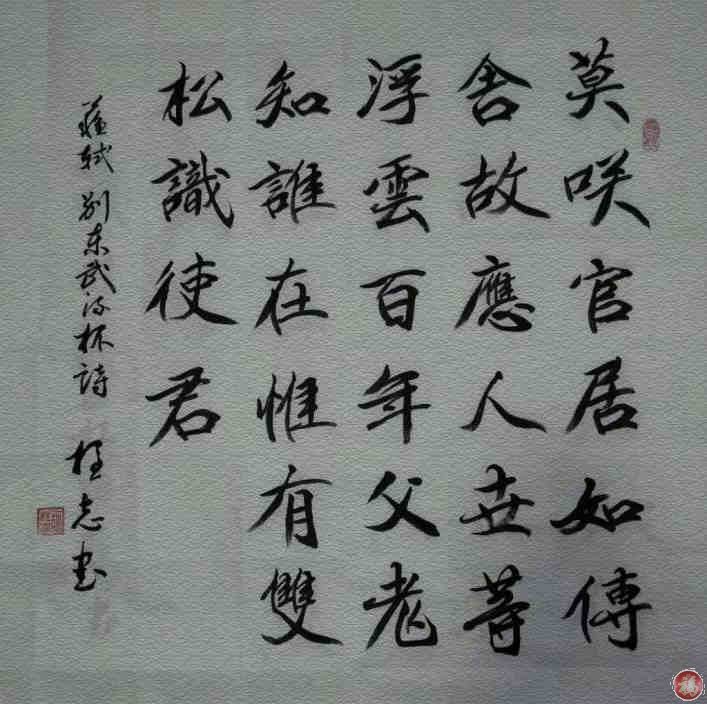 莫咲官居如傳
舍故應人世等
浮雲百年父老
知誰在惟有雙
松識使君
蘇軾別東武流杯詩 志书
福